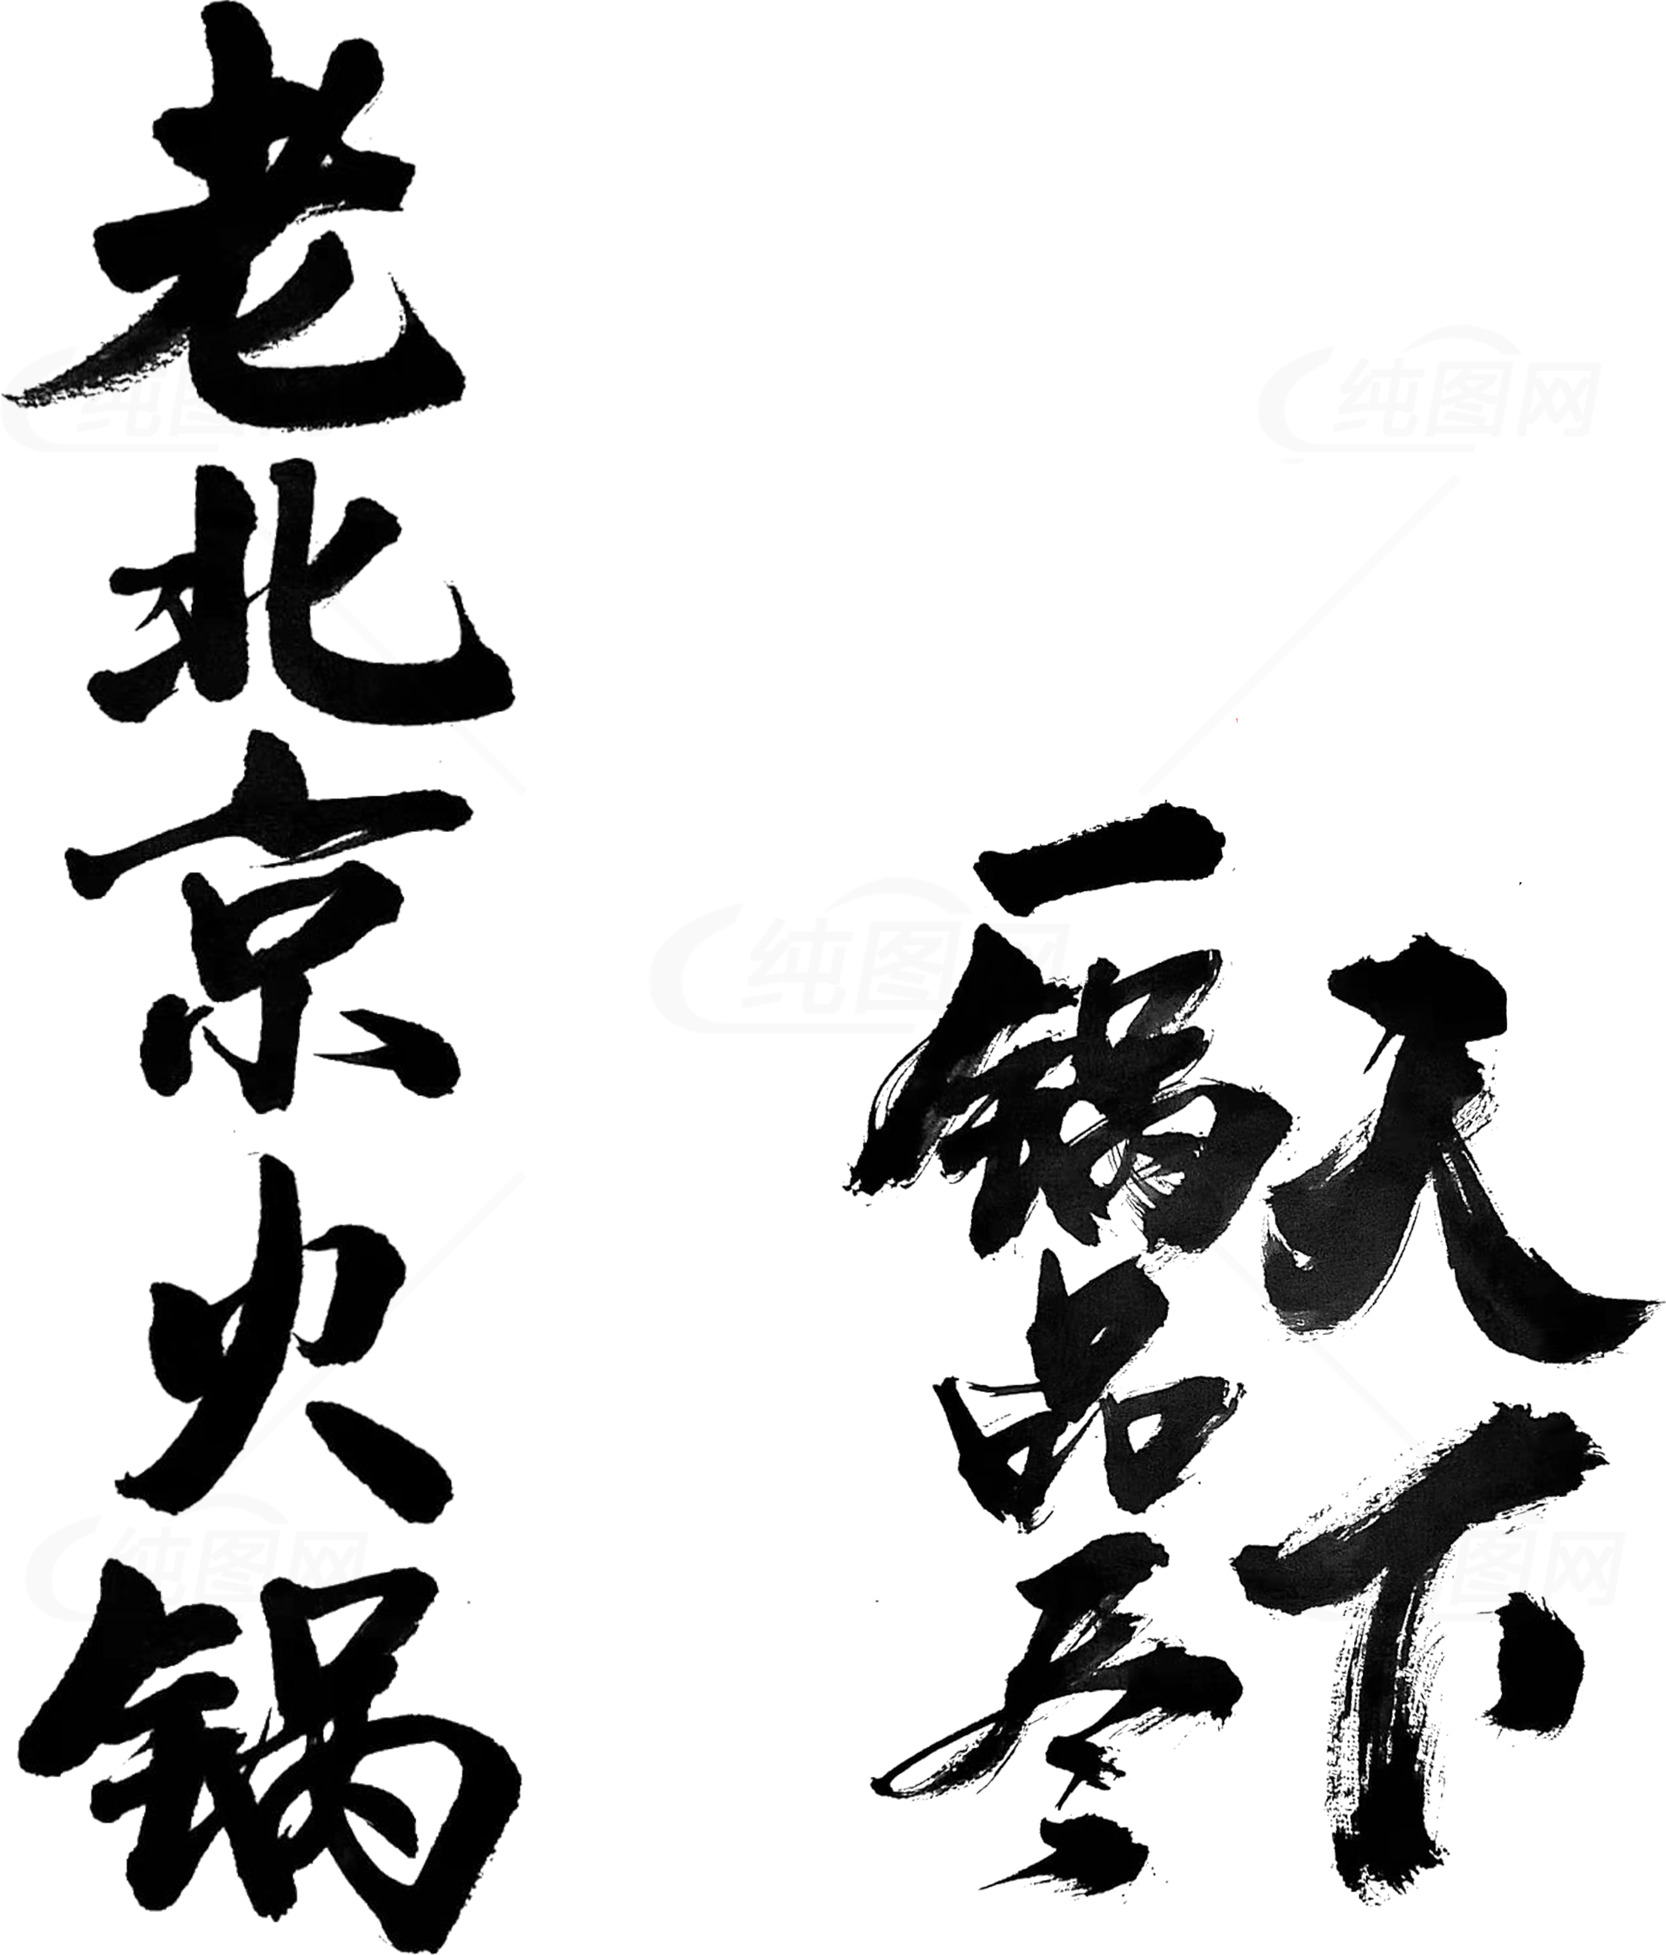 老北京火锅
一锅品尽
天下
纯图网
纯图网
纯图网
纯图网
纯图网